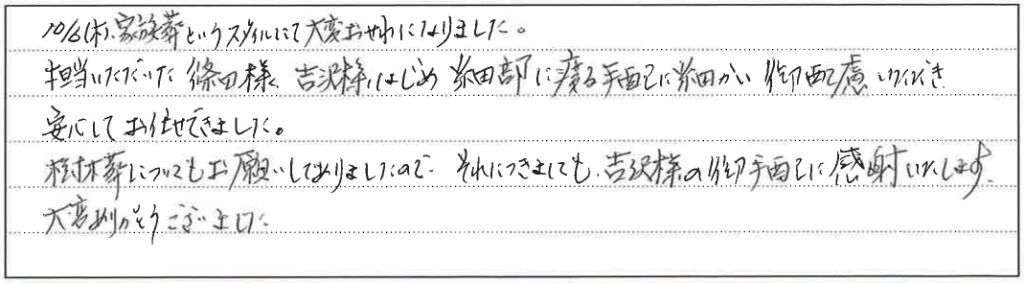 10/6(木)、家族葬というスタイルにて大変お世わになりました。
担当いただいた 篠田様、吉沢様はじめ 細部に渡る手配に細かい御配慮いただき
安心してお任せできました。
樹木葬についてもお願いしてありましたので、それにつきましても、吉沢様の御手配に感謝いたします。
大変ありがとうございました